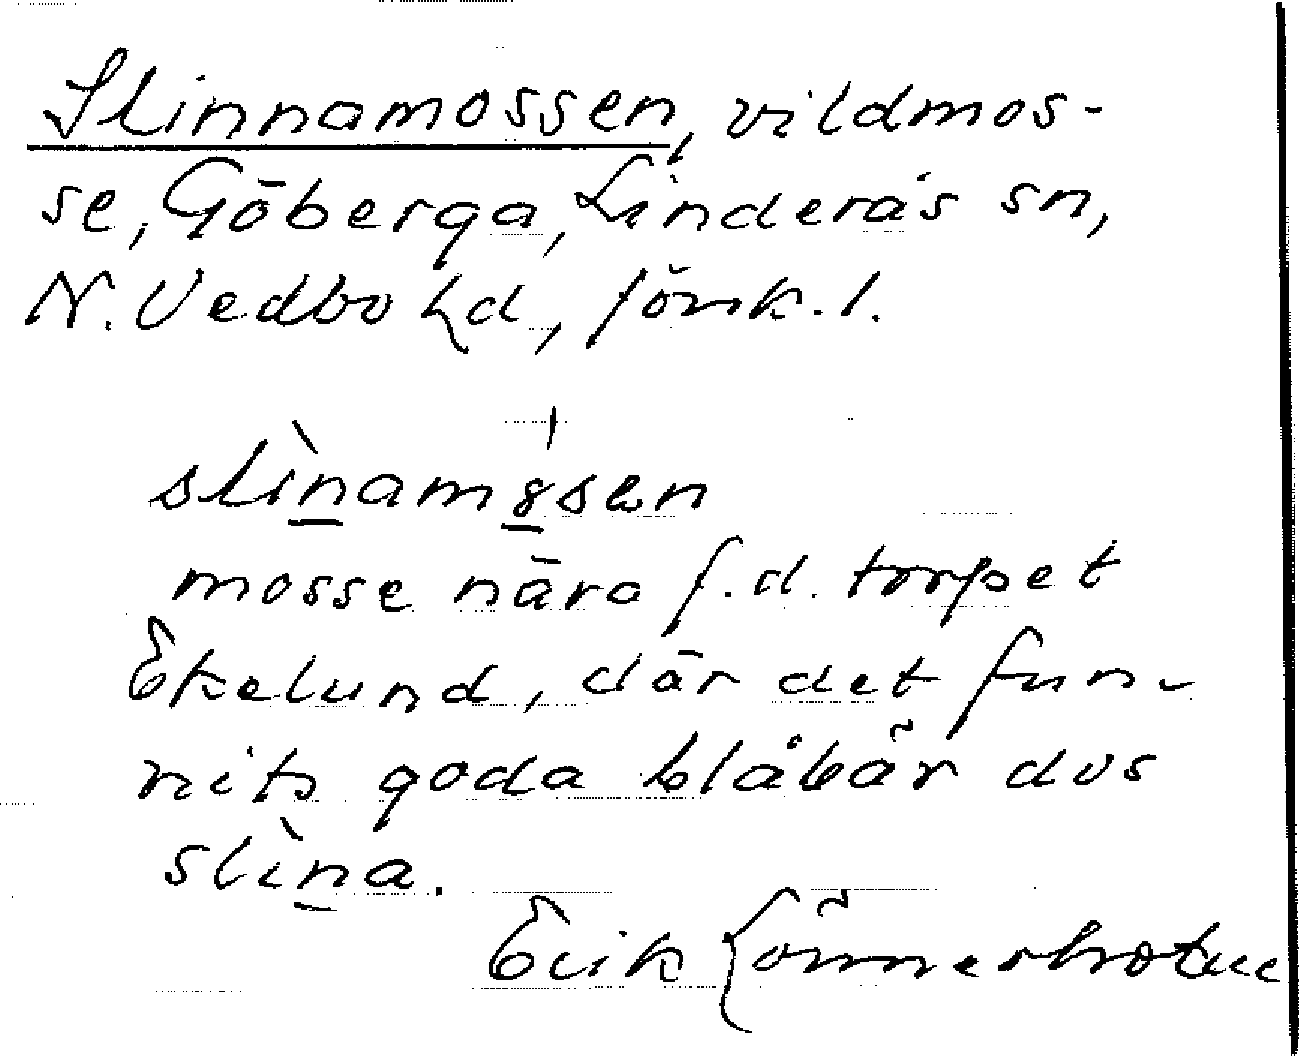 Slinnamossen, vildmos-
se, Göberga, Linderås sn,
N. Vedbo hd, Jönk. l.
slìnamɤsən
mosse nära f.d. torpet
Ekelund, där det fun-
nits goda blåbär dvs
slìna.
Erik Lönnerholm